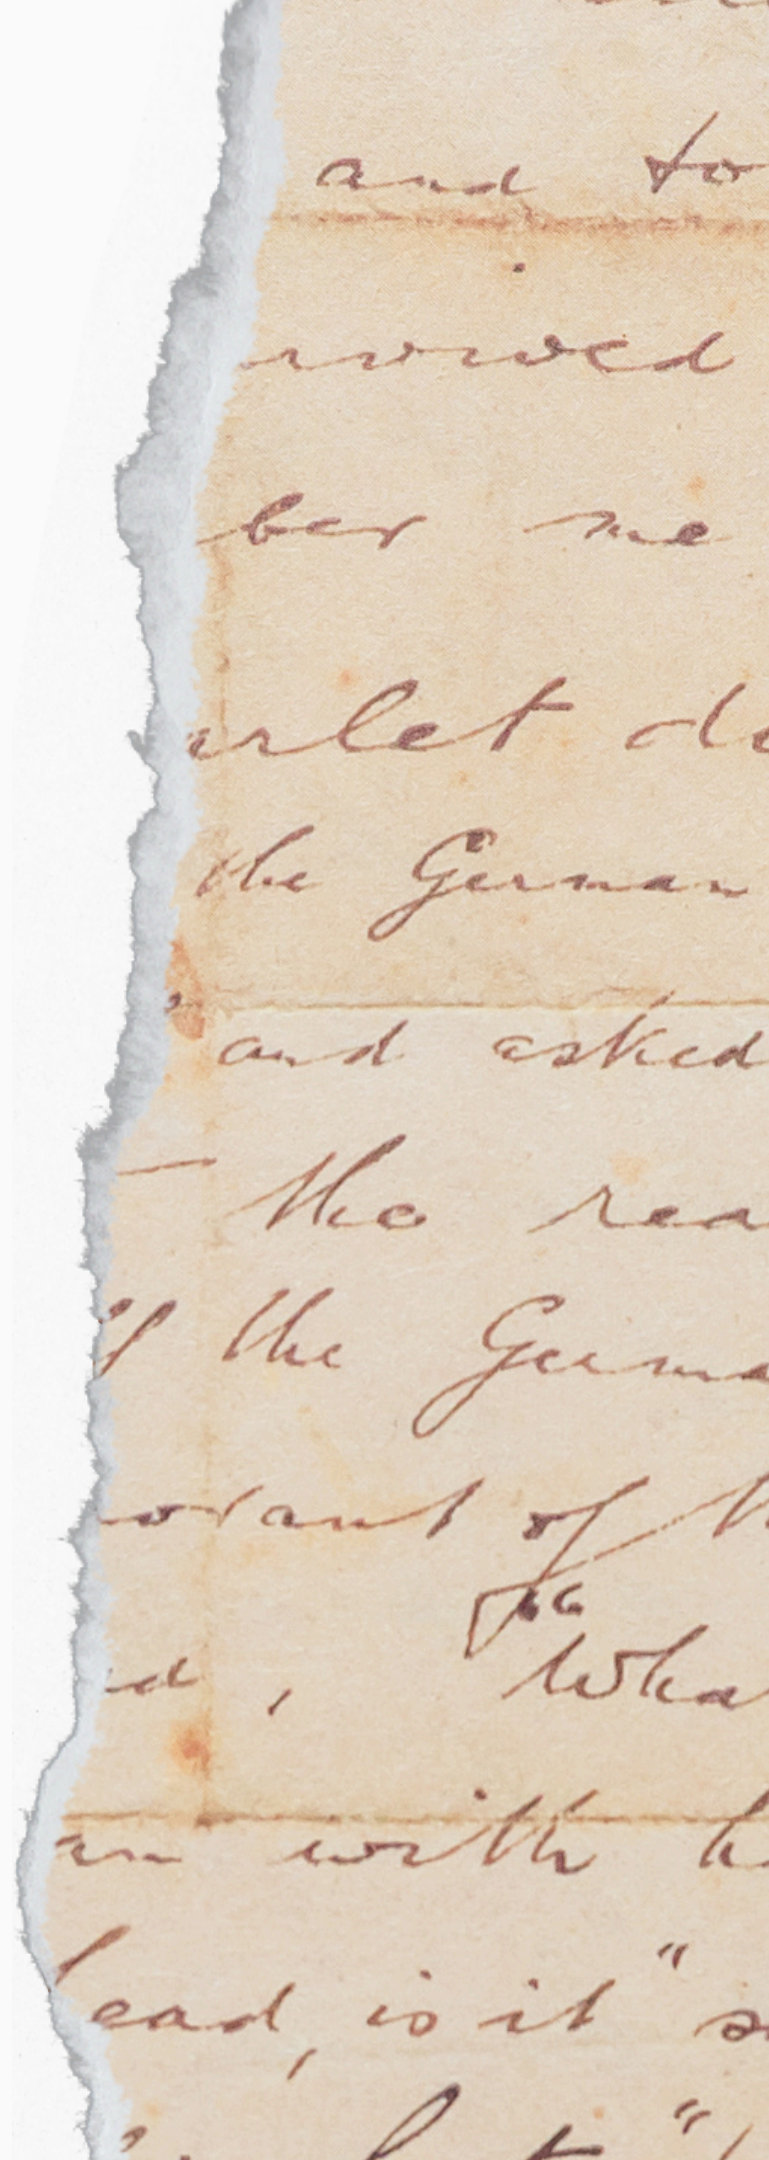 and to
rowed
ber me
arlet
the German
and asked
the rea
of the Germa
norant of
d, "Wha
an with
head, is it" s